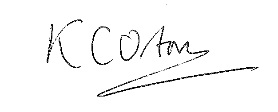 K C Oton